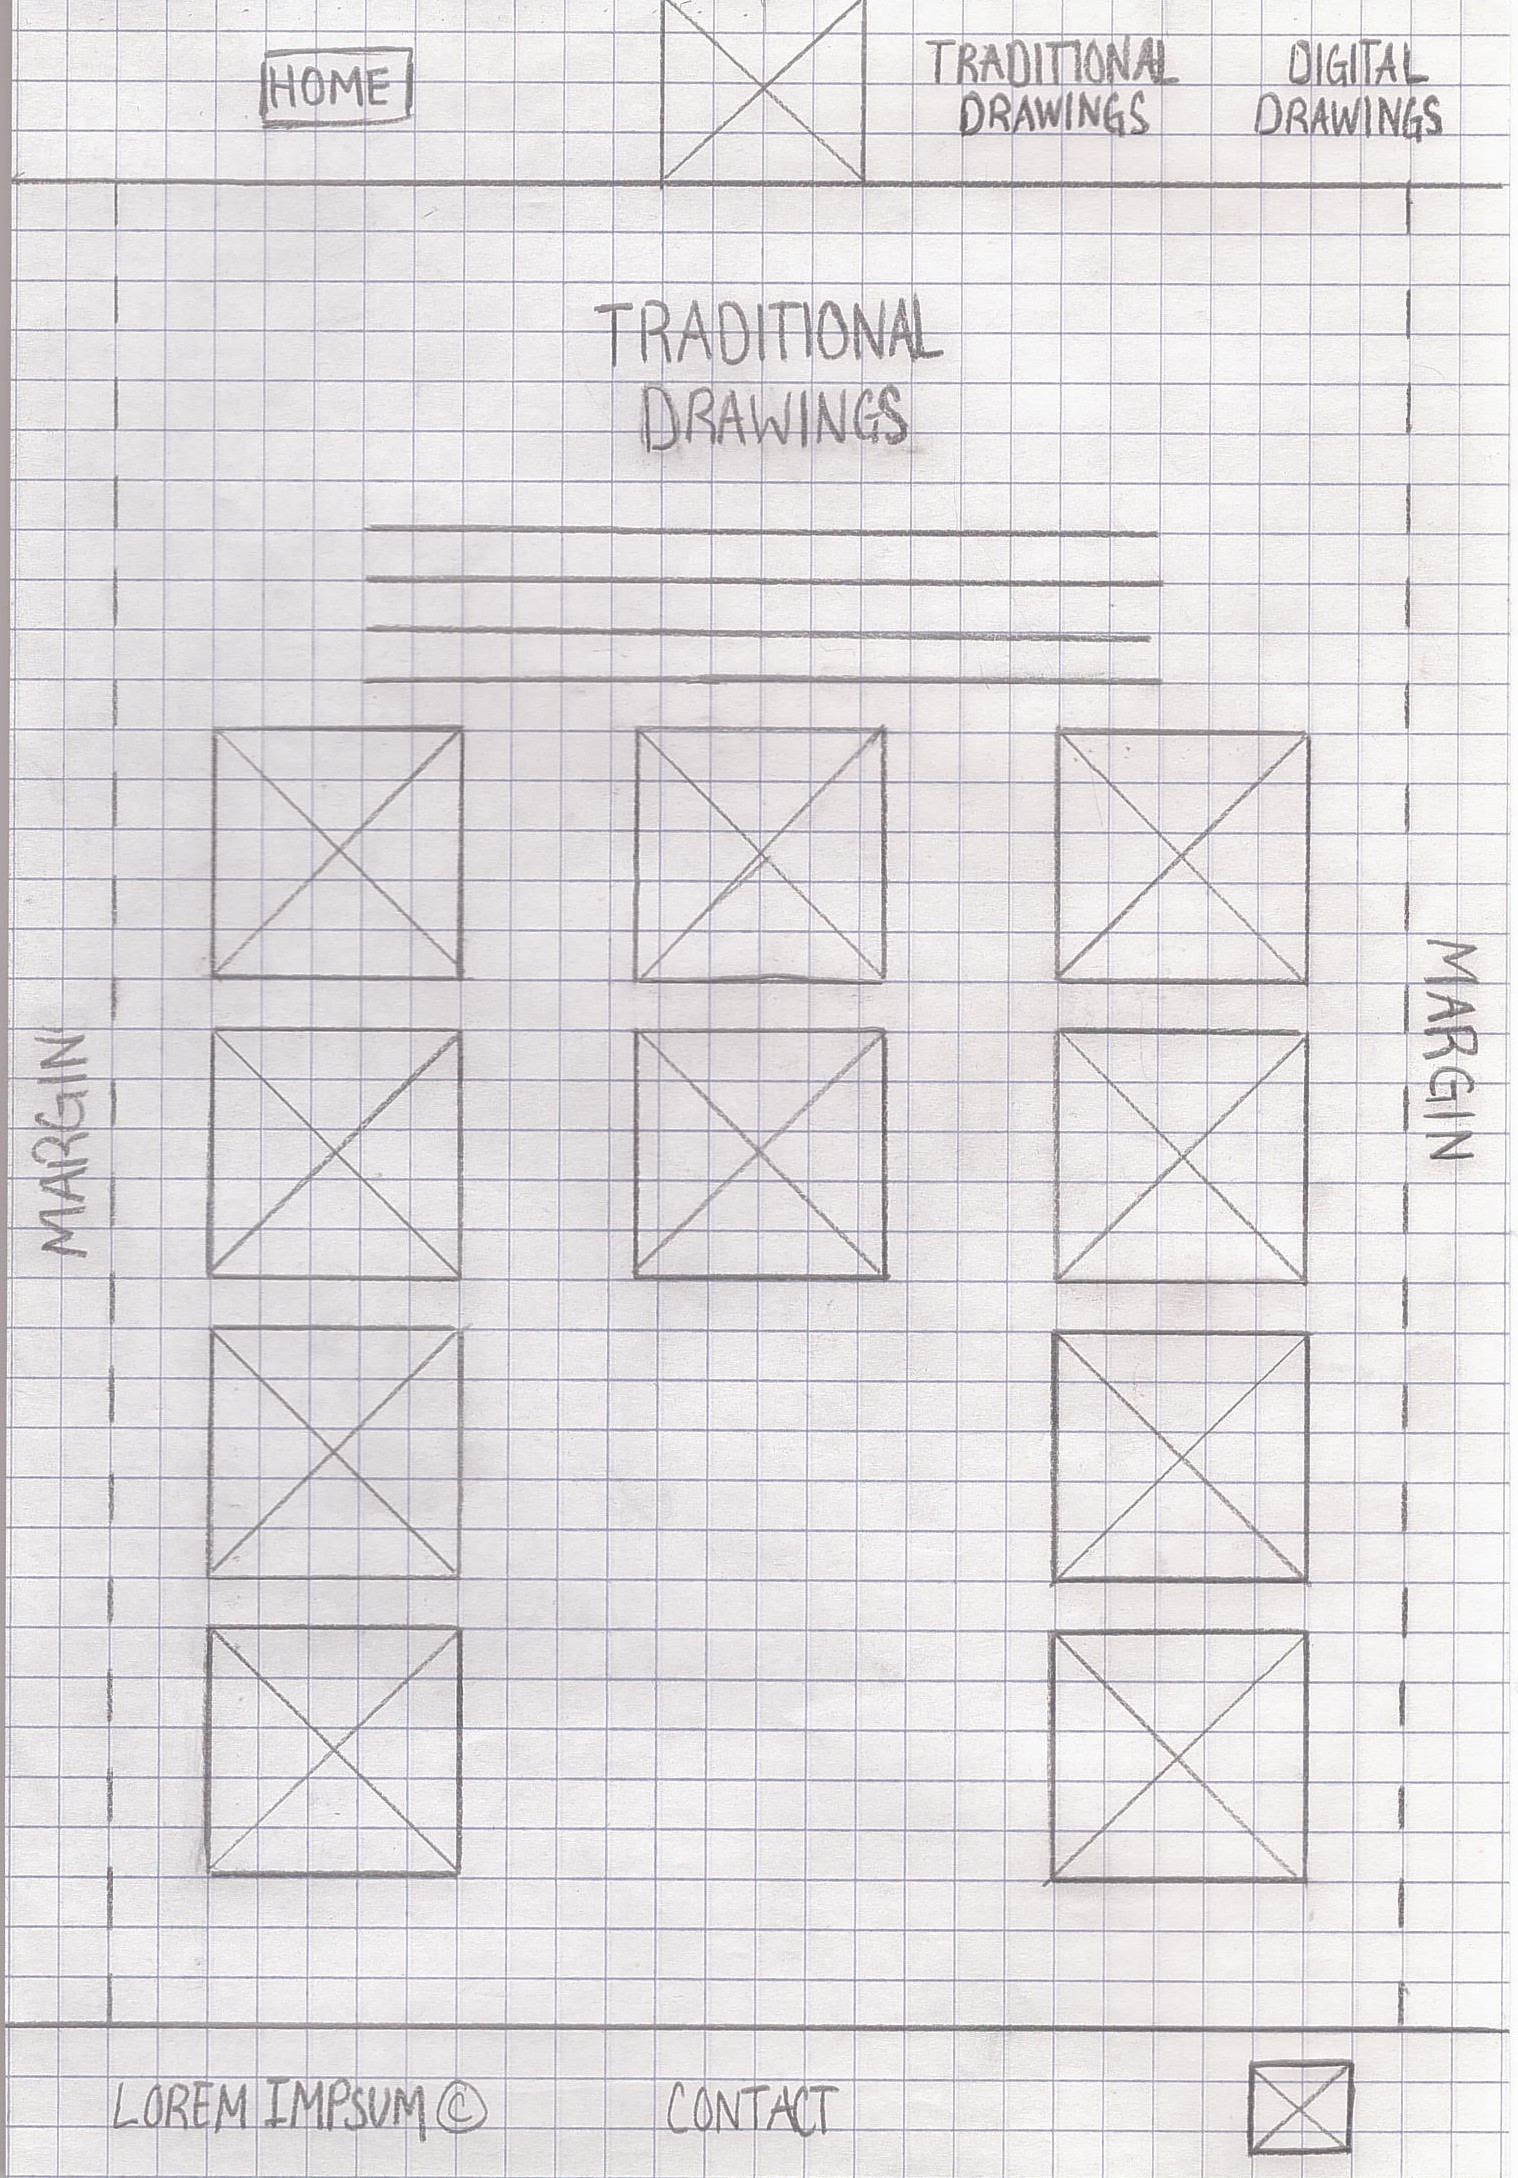 HOME
TRADITIONAL
DRAWINGS
DIGITAL
DRAWINGS
TRADITIONAL
DRAWINGS
MARGIN
MARGIN
LOREM IMPSUM ©
CONTACT